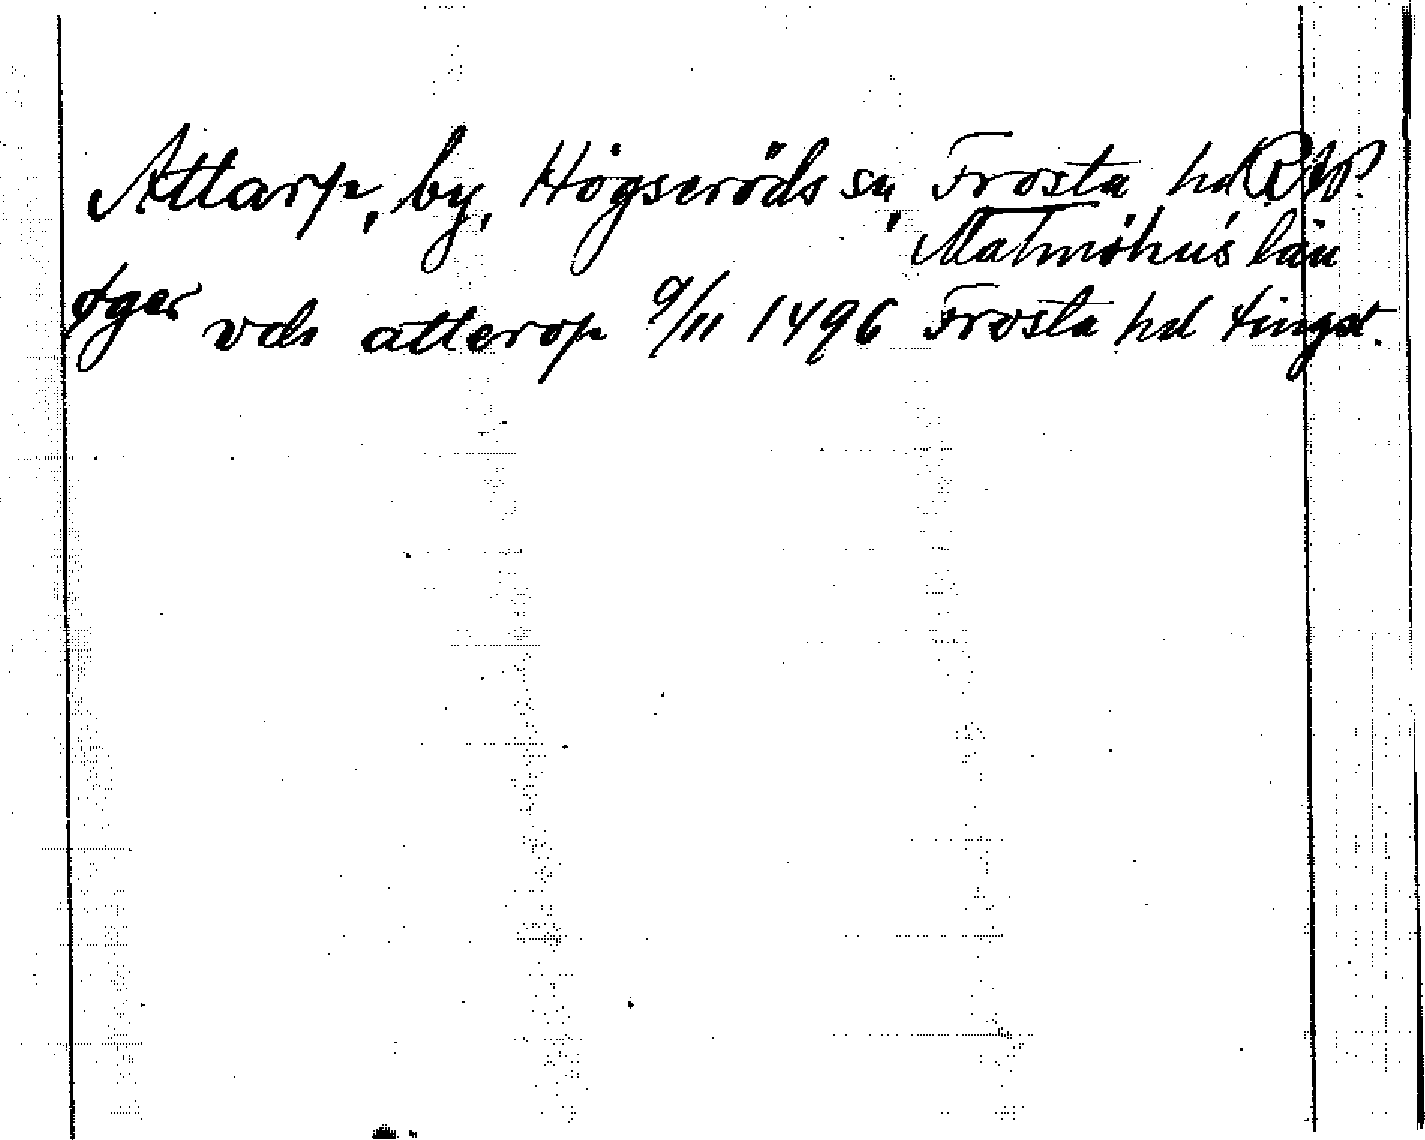 Attarp, by, Högseröds sn, Frosta hd
Malmöhus län
vdi atterop 9/11 1496 Frosta hd tingst.